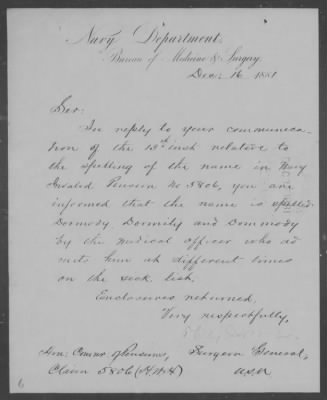 Navy Department,
Bureau of Medicine & Surgery,
Dec. 16 1881
Sir:
In reply to your communica-
tion of the 15th inst relative to
the spelling of the name in Navy
Invalid Pension No 5806, you are
informed that the name is spelled
Dormody, Dormity and Dommody
by the medical officer who ad
mits him at different times
on the sick list.
Enclosures returned.
Very respectfully,
Hon: Commr of Pensions, Surgeon General,
Claim 5806 (A.W.H) U.S.N
6